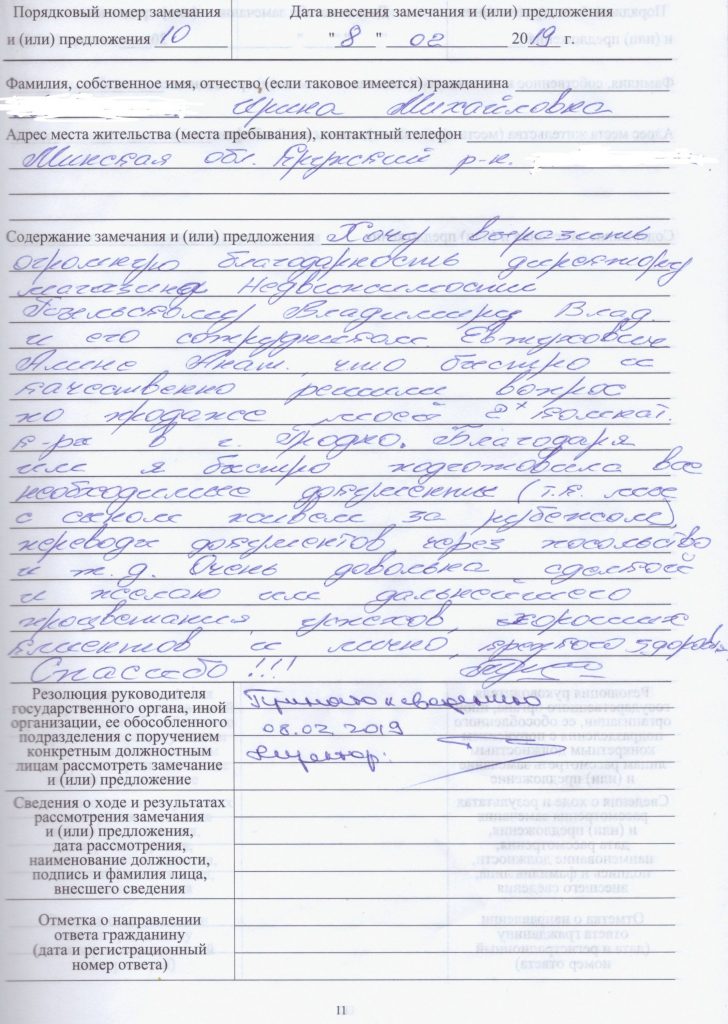 Порядковый номер замечания
и (или) предложения 10
Дата внесения замечания и (или) предложения
" 8 " 02 2019 г.
Фамилия, собственное имя, отчество (если таковое имеется) гражданина
Ирина Михайловна
Адрес места жительства (места пребывания), контактный телефон
Минская обл. р-н.
Содержание замечания и (или) предложения Хочу выразить
огромную благодарность директору
магазина Недвижимости
Владимиру Влад.
и его сотрудникам
Анат., что быстро и
качественно решили вопрос
по продаже моей 2х комнат.
к-ры в г. Гродно. Благодаря
им я быстро подготовила все
необходимые документы (т.к. мы
с сыном живем за рубежом)
переводы документов через посольство
и т.д. Очень довольна сделкой
и желаю им дальнейшего
процветания, успехов, хороших
клиентов и лично, крепкого здоровья
Спасибо!!!
Резолюция руководителя
государственного органа, иной
организации, ее обособленного
подразделения с поручением
конкретным должностным
лицам рассмотреть замечание
и (или) предложение
Принято к сведению
08.02.2019
Директор:
Сведения о ходе и результатах
рассмотрения замечания
и (или) предложения,
дата рассмотрения,
наименование должности,
подпись и фамилия лица,
внесшего сведения
Отметка о направлении
ответа гражданину
(дата и регистрационный
номер ответа)
11